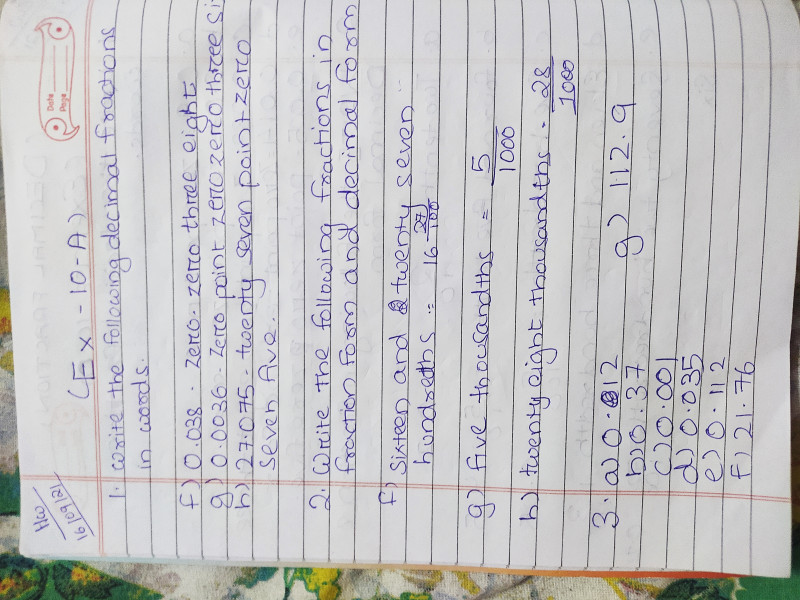 HW
16/09/21
Date
Page
(Ex - 10 - A)
1. Write the following decimal fractions
in words.
f) 0.038 - zero. zero three eight
g) 0.0036 - zero point zero zero three si
h) 27.075 - twenty seven point zero
seven five.
2. Write the following fractions in
fraction form and decimal form
f) Sixteen and twenty seven
hundredths = 16 27/100
g) five thousandths = 5/1000
h) twenty eight thousandths - 28/1000
3. a) 0.612
b) 0.37
g) 112.9
c) 0.001
d) 0.035
e) 0.112
f) 21.76